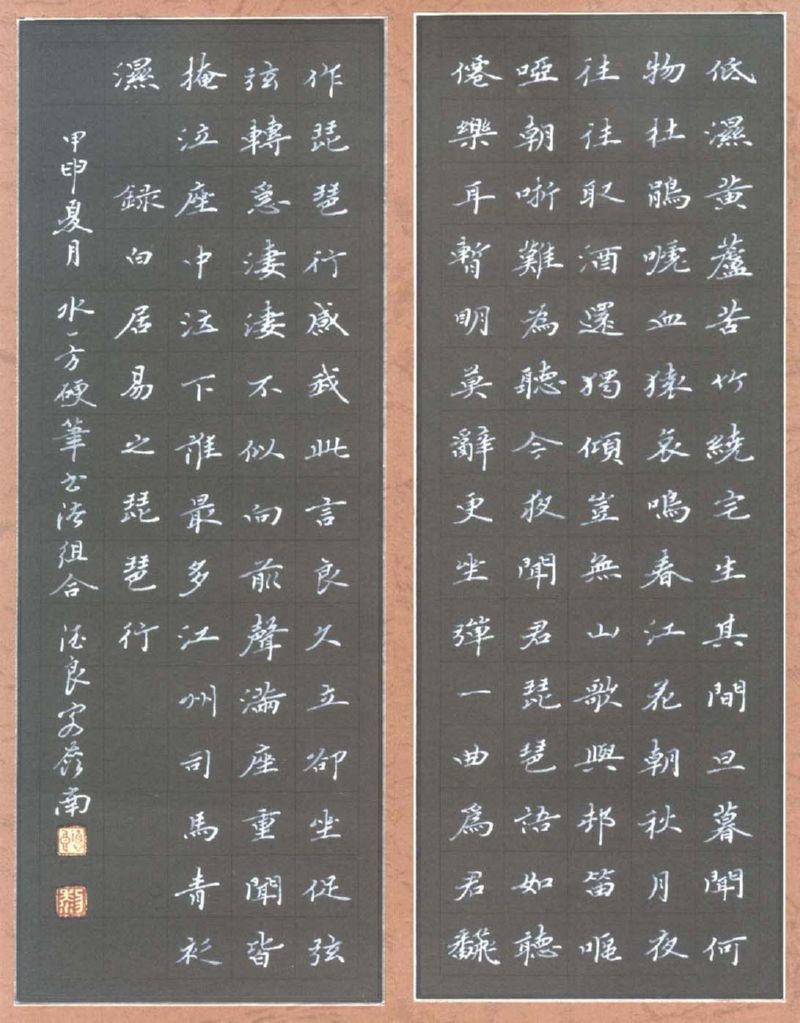 低濕黃蘆苦竹繞宅生其間旦暮聞何
物杜鵑嗁血猿哀鳴春江花朝秋月夜
往往取酒還獨傾豈無山歌與邨笛嘔
啞朝哳難為聽今夜聞君琵琶語如聽
僊樂耳暫明莫辭更坐彈一曲爲君飜
作琵琶行感我此言良久立卻坐促弦
弦轉急淒淒不似向前聲滿座重聞皆
掩泣座中泣下誰最多江州司馬青衫
濕 錄白居易之琵琶行
甲申夏月 水一方硬筆书法組合 良 南